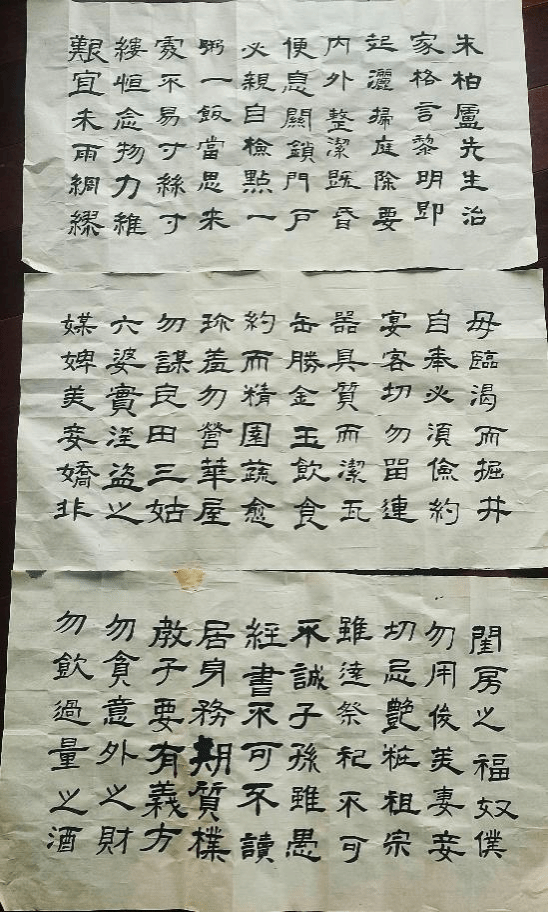 朱柏盧先生治
家格言黎明即
起灑掃庭除要
内外整潔既昏
便息關鎖門戶
必親自檢點一
粥一飯當思来
處不易寸絲寸
縷恒念物力維
艱宜未雨綢繆
毋臨渴而掘井
自奉必須儉約
宴客切勿留連
器具質而潔瓦
缶勝金玉飲食
約而精園蔬愈
珍羞勿營華屋
勿謀良田三姑
六婆實淫盜之
媒婢美妾嬌非
閨房之福奴僕
勿用俊美妻妾
切忌艷粧祖宗
雖遠祭祀不可
不誠子孫雖愚
經書不可不讀
居身務期質樸
教子要有義方
勿貪意外之財
勿飲過量之酒